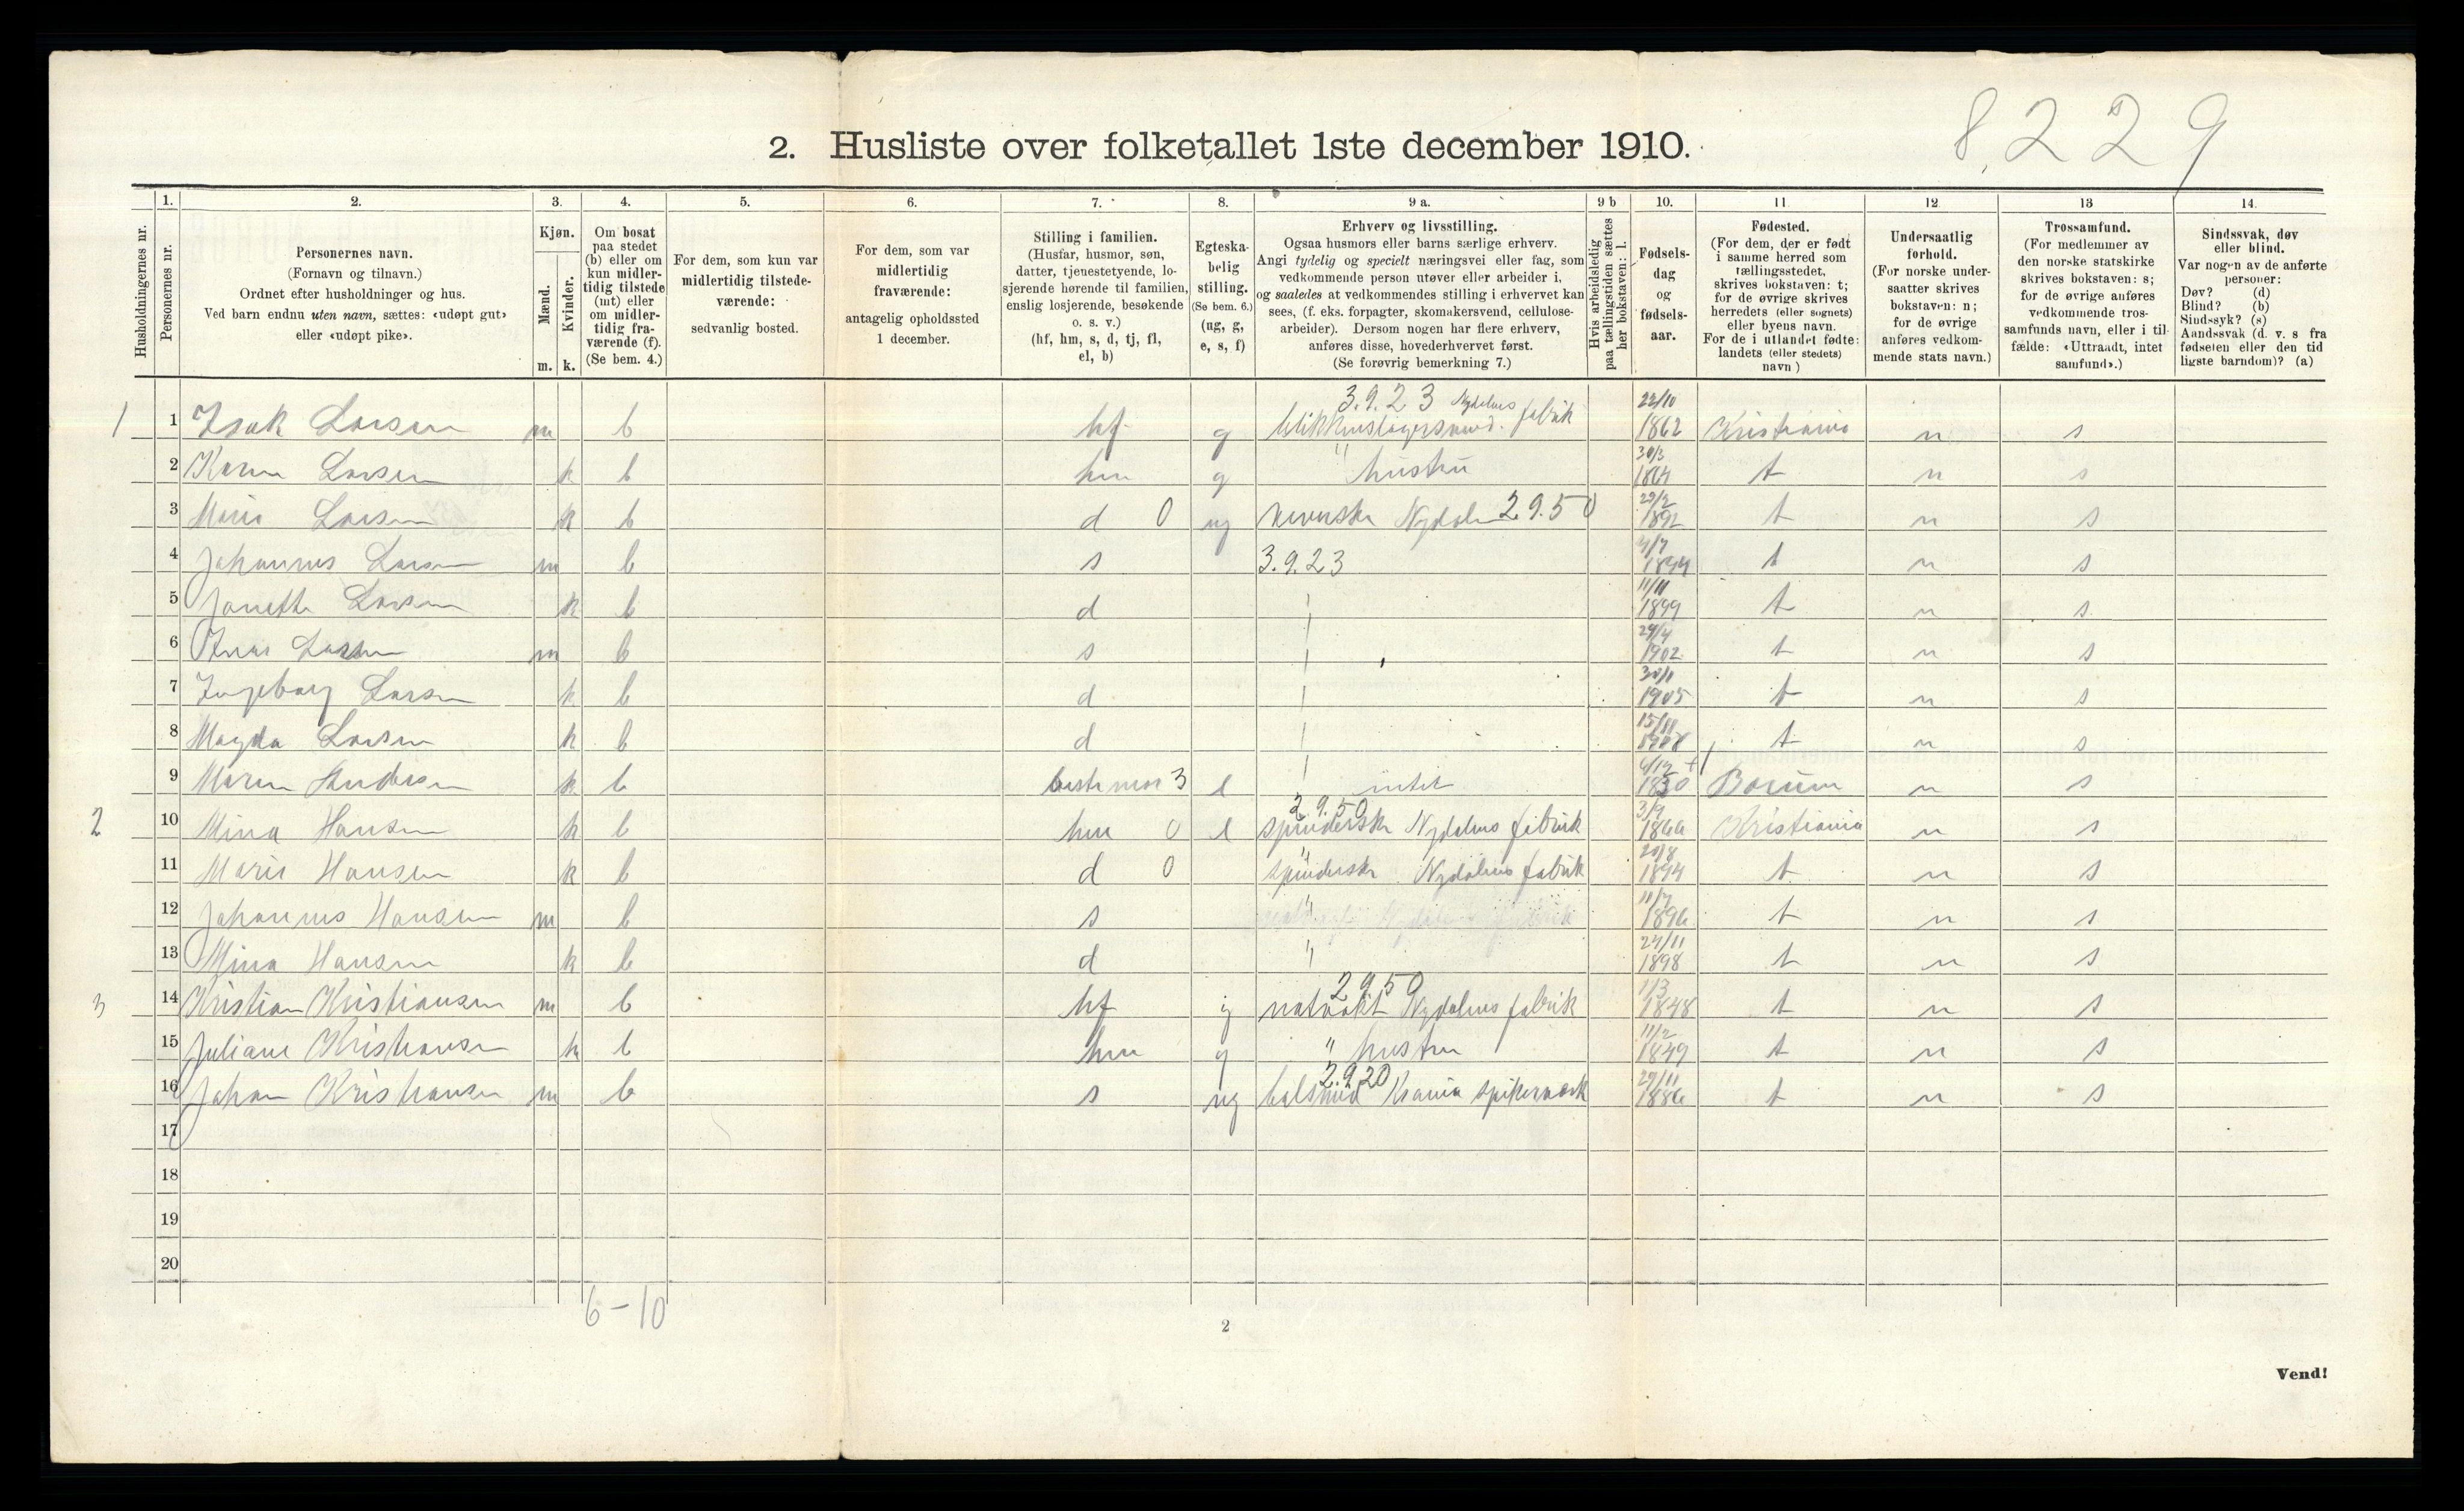 8,229
2. Husliste over folketallet 1ste december 1910.
Husholdningernes nr.
1. Personernes nr.
2. Personernes navn. (Fornavn og tilnavn.) Ordnet efter husholdninger og hus. Ved barn endnu uten navn, sættes: «udøpt gut» eller «udøpt pike».
3. Kjøn. Mænd. m. Kvinder. k.
4. Om bosat paa stedet (b) eller om kun midlertidig tilstede (mt) eller om midlertidig fraværende (f). (Se bem. 4.)
5. For dem, som kun var midlertidig tilstedeværende: sedvanlig bosted.
6. For dem, som var midlertidig fraværende: antagelig opholdssted 1 december.
7. Stilling i familien. (Husfar, husmor, søn, datter, tjenestetyende, losjerende hørende til familien, enslig losjerende, besøkende o. s. v.) (hf, hm, s, d, tj, fl, el, b)
8. Egteskabelig stilling. (Se bem. 6.) (ug, g, e, s, f)
9 a. Erhverv og livsstilling. Ogsaa husmors eller barns særlige erhverv. Angi tydelig og specielt næringsvei eller fag, som vedkommende person utøver eller arbeider i, og saaledes at vedkommendes stilling i erhvervet kan sees, (f. eks. forpagter, skomakersvend, cellulosearbeider). Dersom nogen har flere erhverv, anføres disse, hovederhvervet først. (Se forøvrig bemerkning 7.)
9 b Hvis arbeidsledig paa tællingstiden sættes her bokstaven: l.
10. Fødselsdag og fødselsaar.
11. Fødested. (For dem, der er født i samme herred som tællingsstedet, skrives bokstaven: t; for de øvrige skrives herredets (eller sognets) eller byens navn. For de i utlandet fødte: landets (eller stedets) navn)
12 Undersaatlig forhold. (For norske undersaatter skrives bokstaven: n; for de øvrige anføres vedkommende stats navn.)
13 Trossamfund. (For medlemmer av den norske statskirke skrives bokstaven: s; for de øvrige anføres vedkommende trossamfunds navn, eller i tilfælde: «Uttraadt, intet samfund».)
14. Sindssvak, døv eller blind. Var nogen av de anførte personer: Døv? (d) Blind? (b) Sindssyk? (s) Aandssvak (d. v. s fra fødselen eller den tidligste barndom)? (a)
1 1 Isak Larsen m b hf g 3.9.23 blikkenslagersvend. Nydalens fabrik 22/10 1862 Kristiania n s
2 Karen Larsen k b hm g " hustru 30/3 1864 t n s
3 Marie Larsen k b d 0 ug Nydalen 29.50 29/2 1892 t n s
4 Johannes Larsen m b s 3.9.23 1894 t n s
5 Janette Larsen k b d 11/11 1899 t n s
6 Larsen m b s 29/4 1902 t n s
7 Ingeborg Larsen k b d 1905 t n s
8 Magda Larsen k b d 15/11 t n s
9 Maren Andersen k b bestemor 3 e intet 4/12 1830 Bærum n s
2 10 Mina Hansen k b hm 0 e 2.9.50 spinderske Nydalens fabrik 3/9 1866 Kristiania n s
11 Marie Hansen k b d 0 " spinderske Nydalens fabrik 20/8 1894 t n s
12 Johannes Hansen m b s " Nydalens fabrik 11/7 1896 t n s
13 Mina Hansen k b d " 24/11 1898 t n s
3 14 Kristian Kristiansen m b hf g 2950 natvakt Nydalens fabrik 1/3 1848 t n s
15 Juliane Kristiansen k b hm g " hustru 11/2 1849 t n s
16 Johan Kristiansen m b s ug 2.920 Krania spikerværk 29/11 1886 t n s
17
18
19
20
6-10
2
Vend!